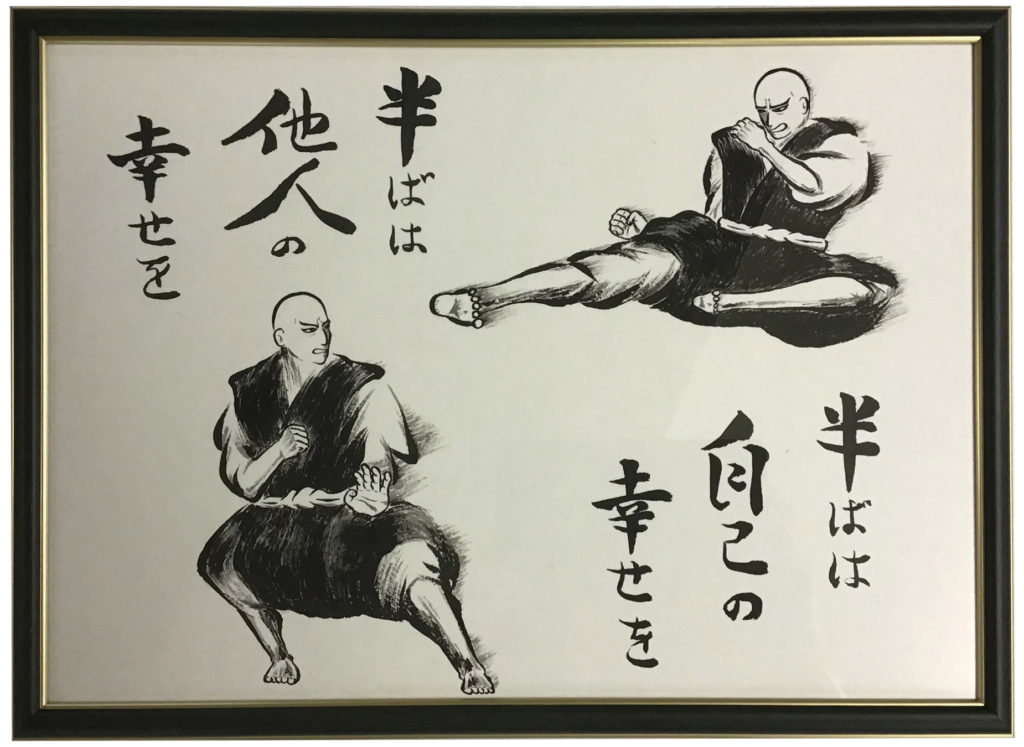 半ばは
自己の
幸せを
半ばは
他人の
幸せを